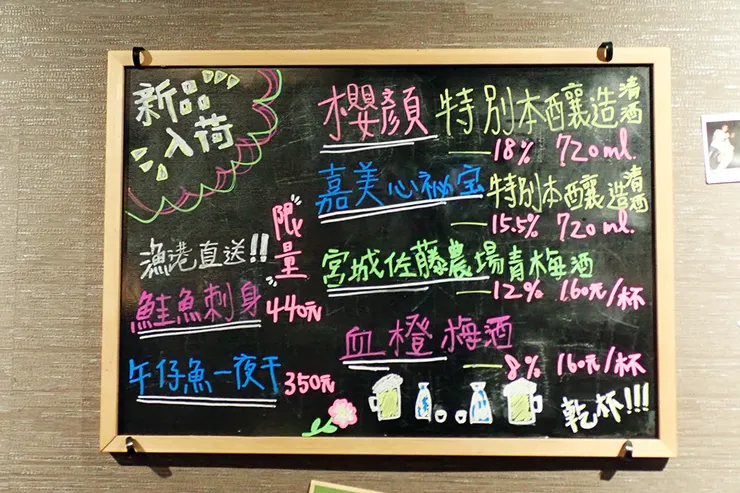 新品
入荷
漁港直送!!
限量
鮭魚刺身 440元
午仔魚一夜干 350元
櫻顏 特別本釀造清酒
18% 720ml.
嘉美心秘宝 特別本釀造清酒
15.5% 720ml.
宮城佐藤農場青梅酒
12% 160元/杯
血橙梅酒
8% 160元/杯
乾杯!!!